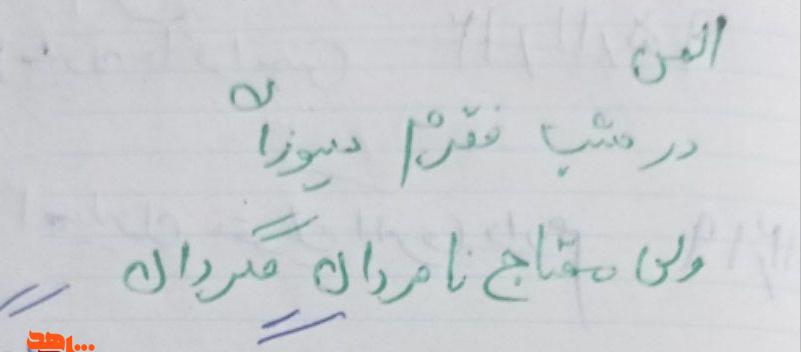 الهی
در تب فقرم بسوزان
ولی محتاج نامردان مگردان